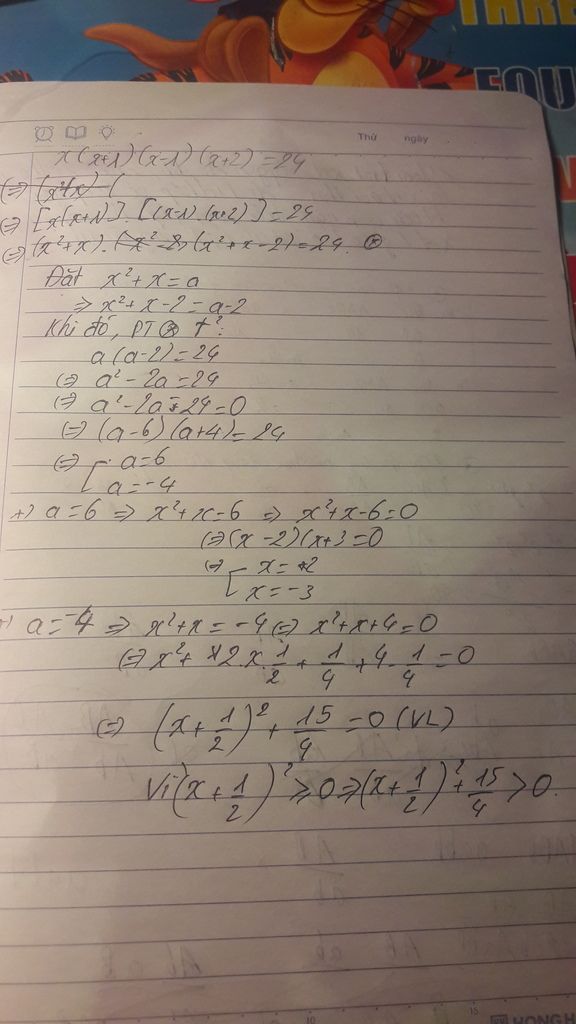 THRE
FOU
Thứ ngày
x(x+1)(x-1)(x+2)=24
(=) (x²+x) (
(=) [x(x+1)].[(x-1).(x+2)]=24
(=) (x²+x).(x²-2)(x²+x-2)=24. (*)
Đặt x²+x=a
=> x²+x-2=a-2
Khi đó, PT (*) t²:
a(a-2)=24
(=) a²-2a=24
(=) a²-2a-24=0
(=) (a-6)(a+4)=24
(=) [a=6
a=-4
+) a=6 => x²+x=6 => x²+x-6=0
(=) (x-2)(x+3=0
(=) [x=2
x=-3
+) a=-4 => x²+x=-4 (=) x²+x+4=0
(=) x²+2x.1/2+1/4+4-1/4=0
(=) (x+1/2)²+15/4=0 (VL)
Vì (x+1/2)²≥0=>(x+1/2)²+15/4>0.
HONG H